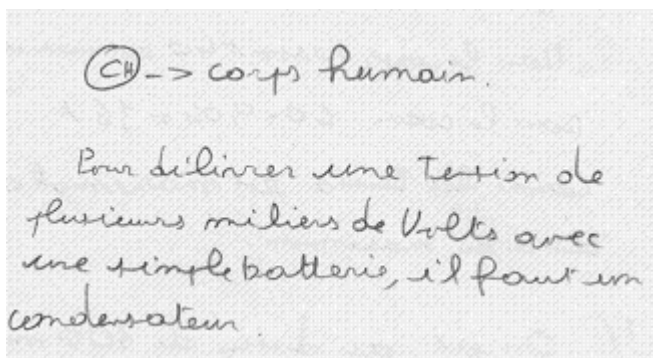 CH -> corps humain.
Pour délivrer une Tension de
plusieurs miliers de Volts avec
une simple batterie, il faut un
condensateur.